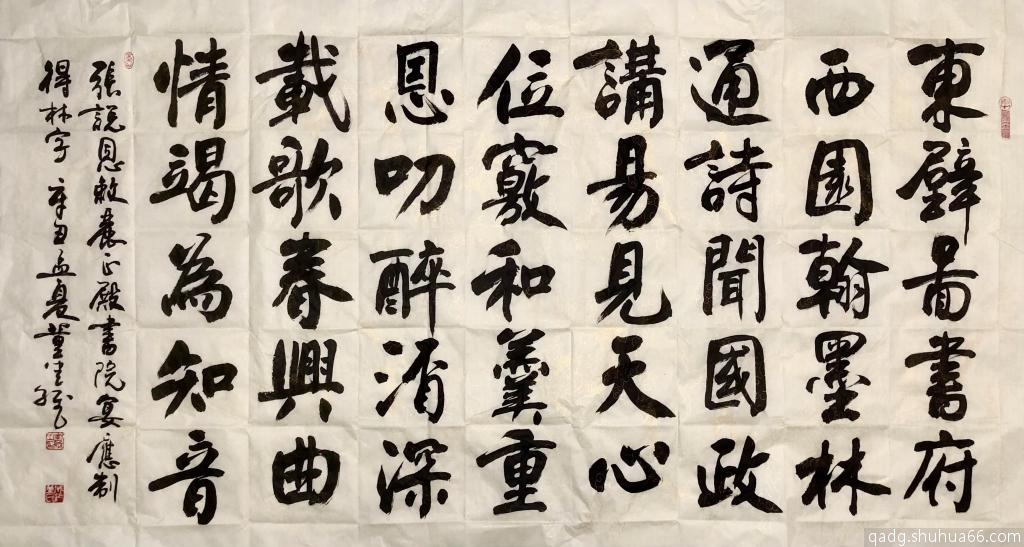 東壁啚書府
西園翰墨林
通詩聞國政
講易見天心
位竅和羹重
恩叨醉酒深
載歌春興曲
情竭為知音
張說恩敕麗正殿書院宴應制
得林字 辛丑孟夏董生
qadg.shuhua66.com